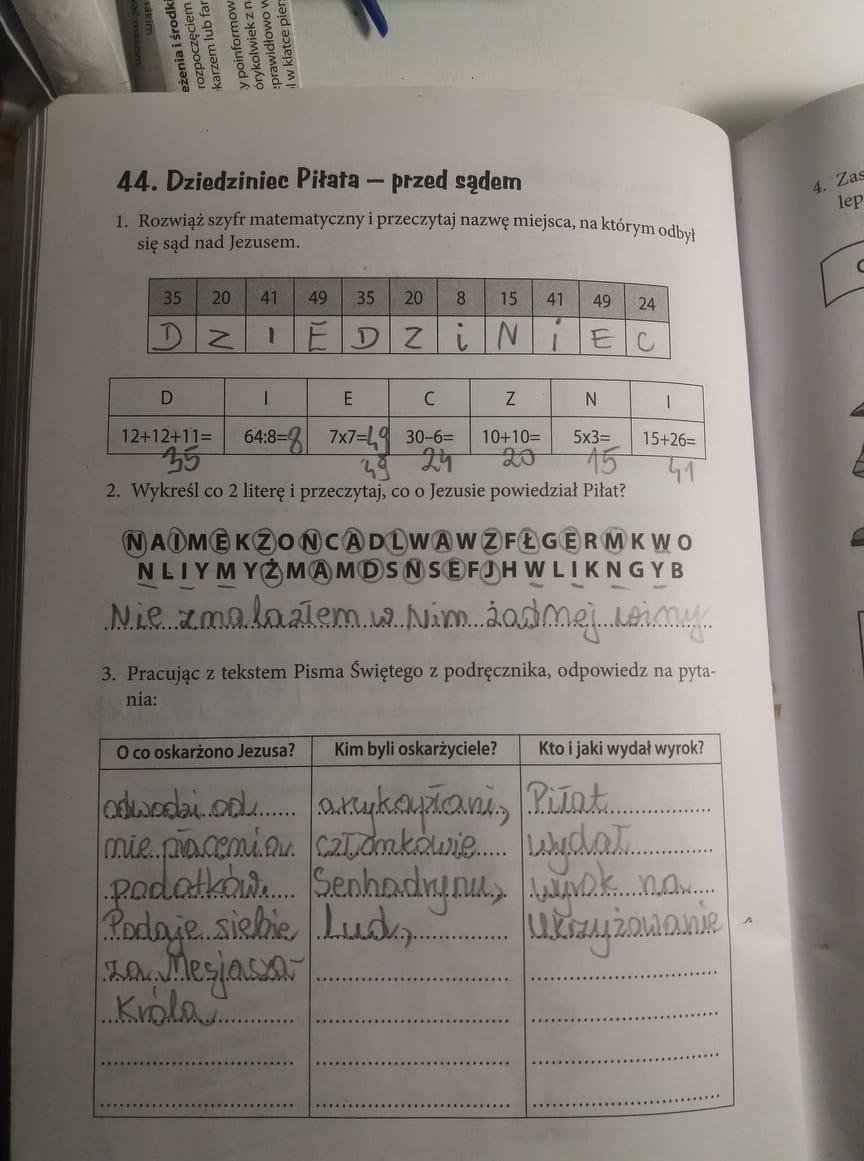 takim
eżenia i środki
rozpoczęciem
karzem lub far
y poinformow
órykolwiek z n
eprawidłowo w
l w klatce pier
44. Dziedziniec Piłata — przed sądem
1. Rozwiąż szyfr matematyczny i przeczytaj nazwę miejsca, na którym odbył
się sąd nad Jezusem.
35 20 41 49 35 20 8 15 41 49 24
D Z I E D Z i N i E C
D I E C Z N I
12+12+11= 64:8=8 7x7=49 30–6= 10+10= 5x3= 15+26=
35 49 24 20 15 41
2. Wykreśl co 2 literę i przeczytaj, co o Jezusie powiedział Piłat?
NAIMEKZONCADLWAWZFŁGERMKWO
NLIYMYŻMAMDSNSEFJHWLIKNGYB
Nie znalazłem w Nim żadnej winy
3. Pracując z tekstem Pisma Świętego z podręcznika, odpowiedz na pyta-
nia:
O co oskarżono Jezusa? Kim byli oskarżyciele? Kto i jaki wydał wyrok?
odwodzi od arcykapłani, Piłat
nie płacenia członkowie wydał
podatków. Senhadrynu, wyrok na
Podaje siebie Lud, Ukrzyżowanie
za Mesjasza-
Króla
4. Zas
lep